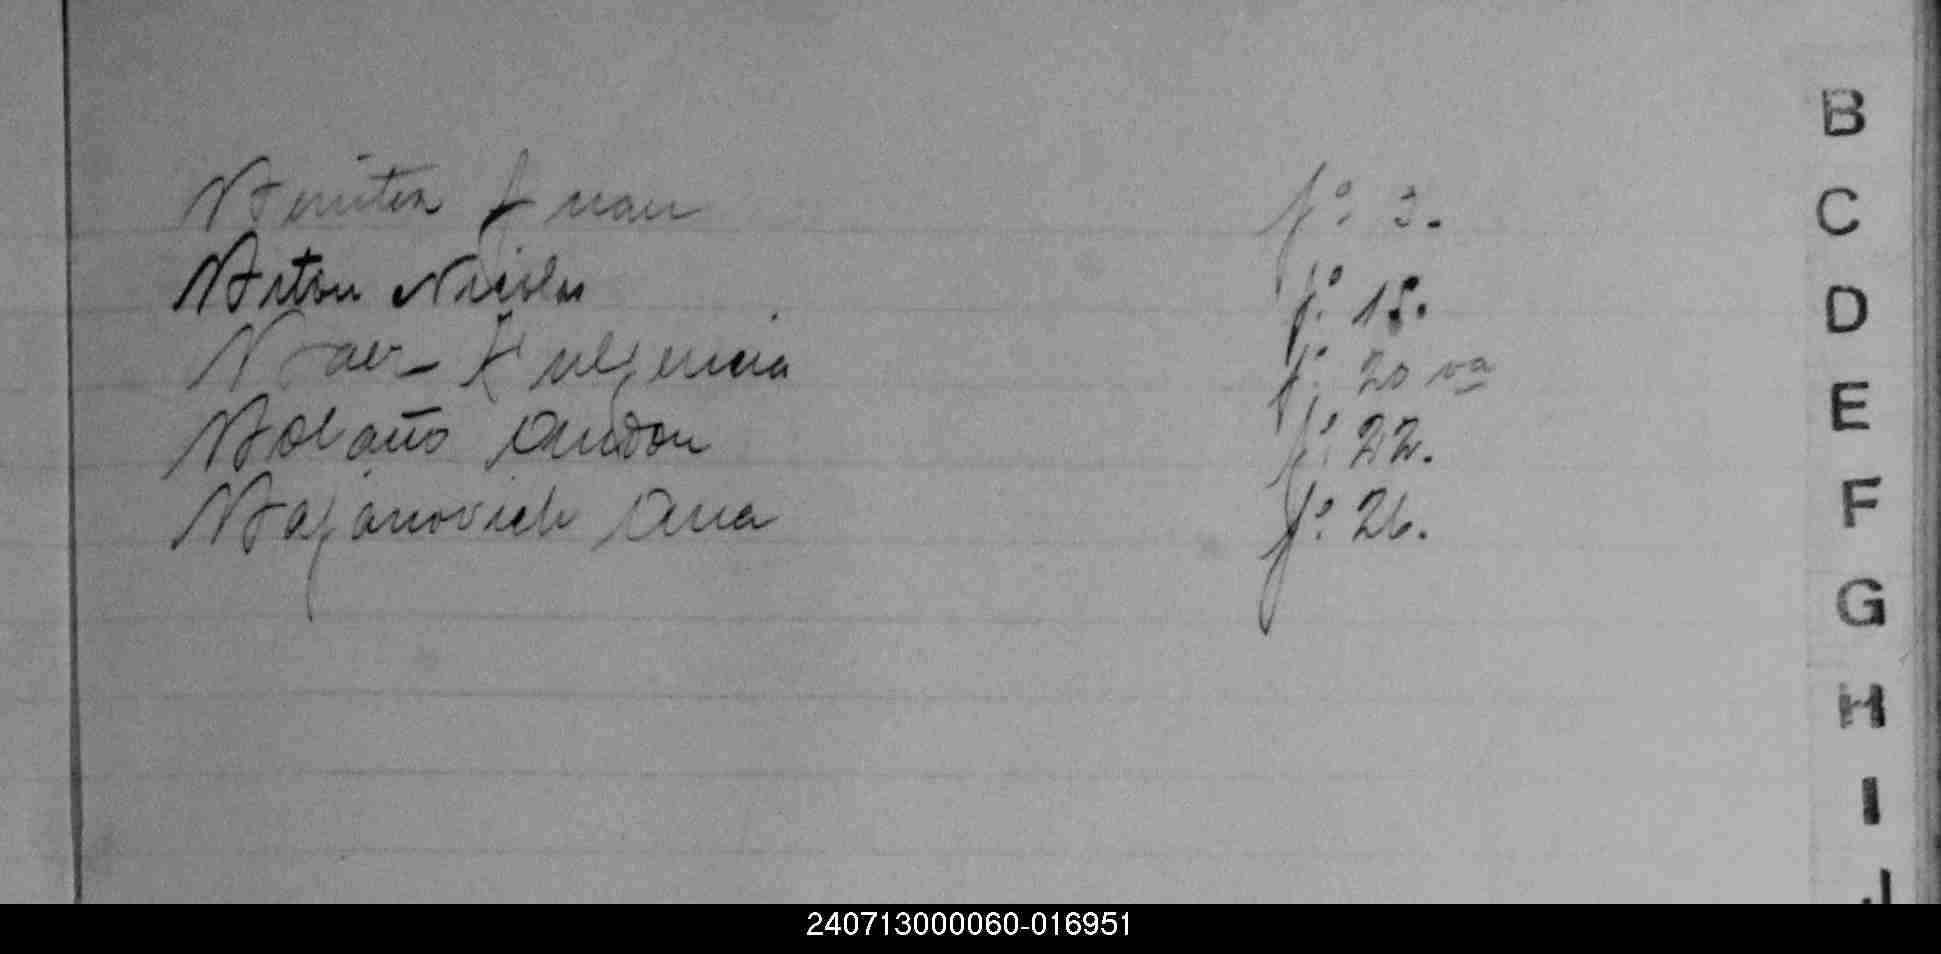 Benitez Juan fº 3.
Biton Nicolas fº 15.
Baer- Fulgencia fº 20 va
Bolaño Andon fº 22.
Bajanovich Ana fº 26.
B
C
D
E
F
G
H
I
J
240713000060-016951